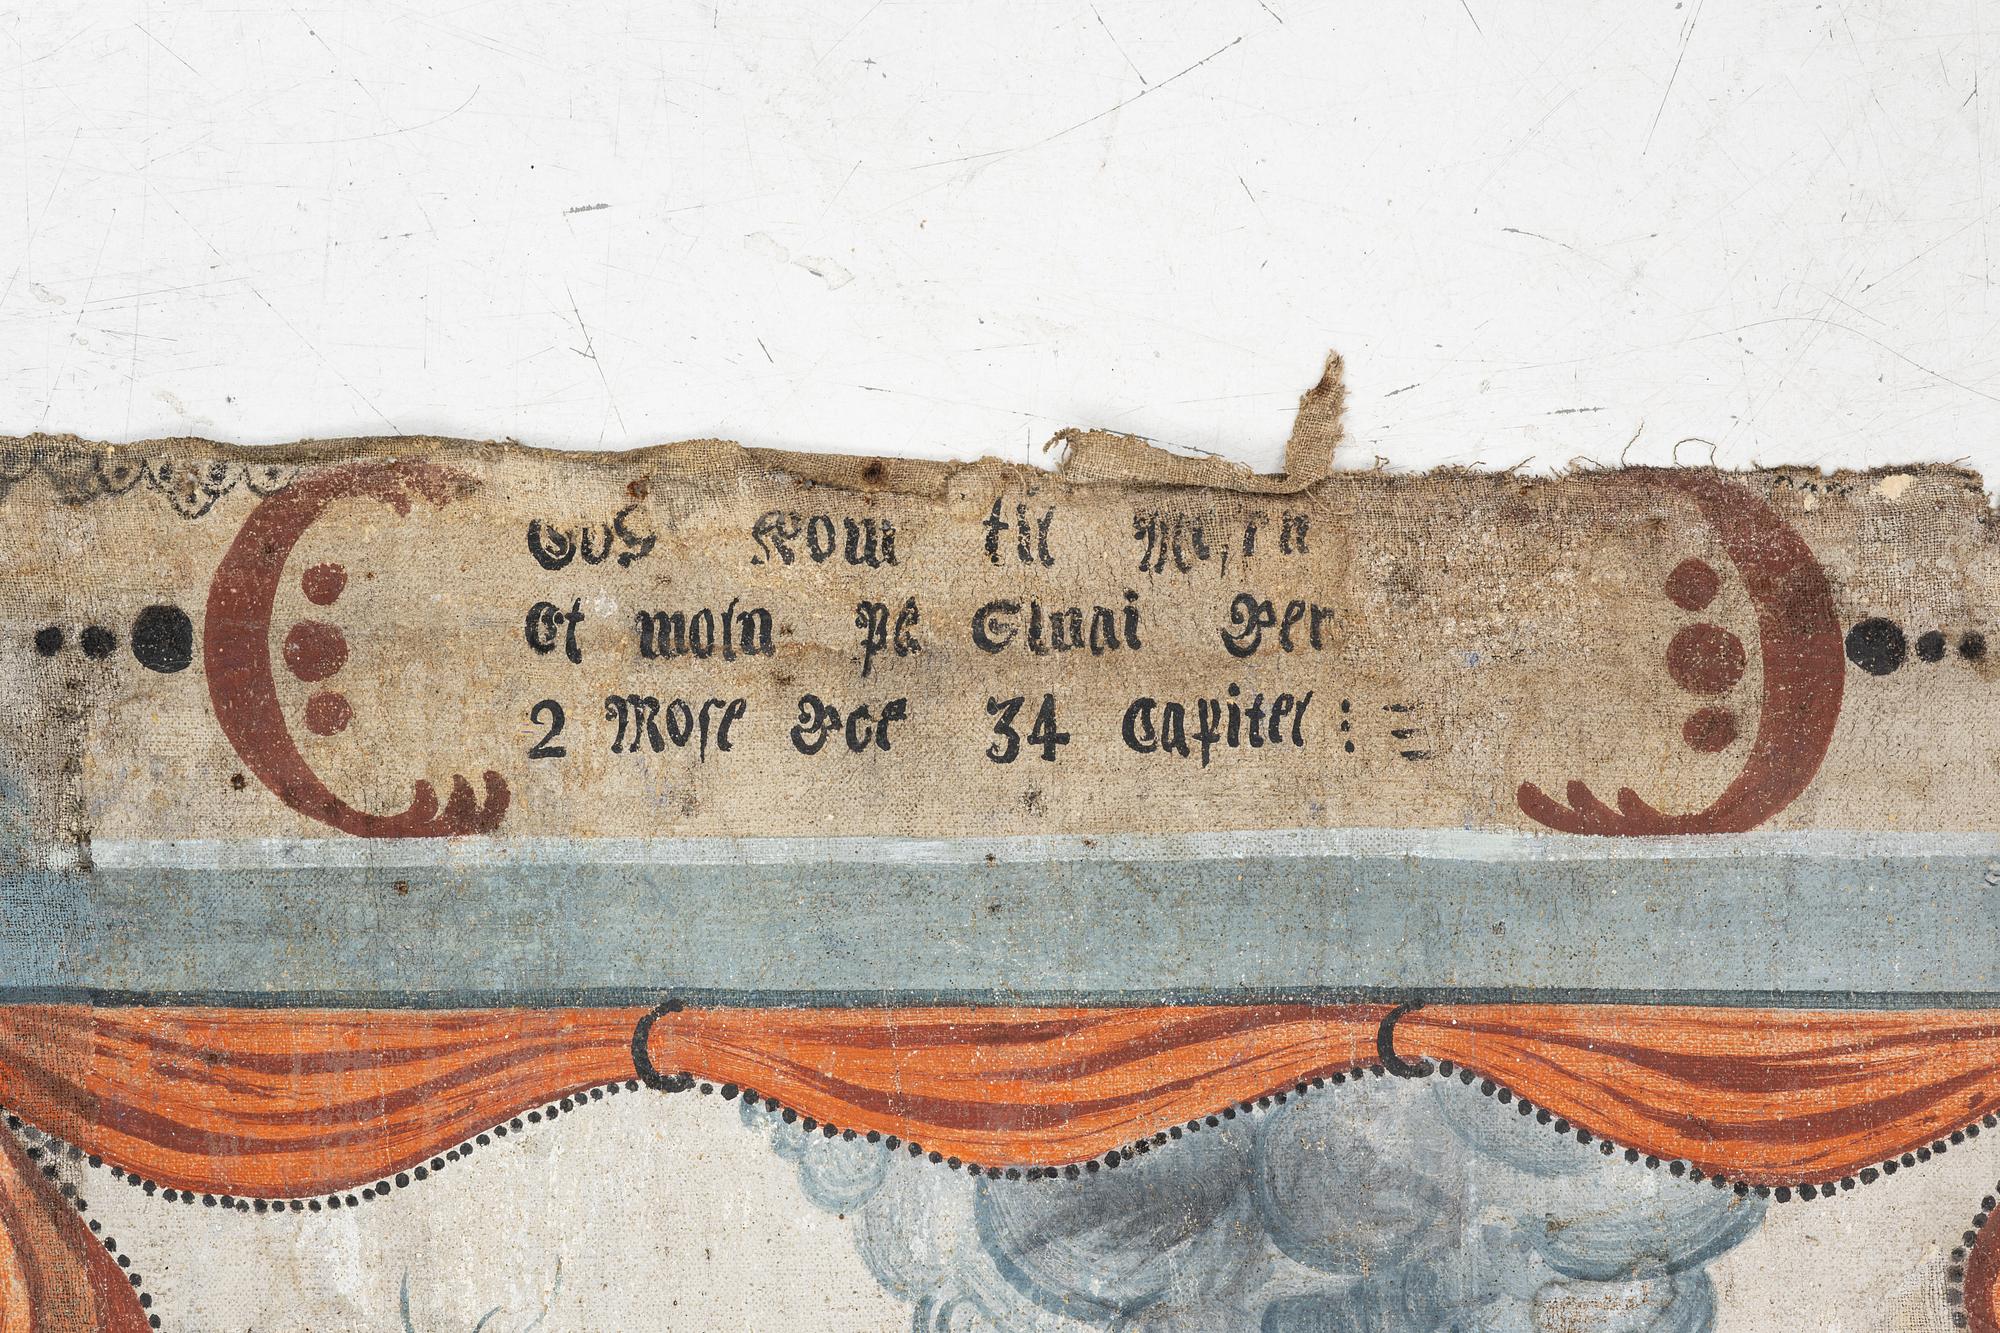 Gud kom til Mosen
Et moln på Sinai Ber
2 Mose Boc 34 Capitel :